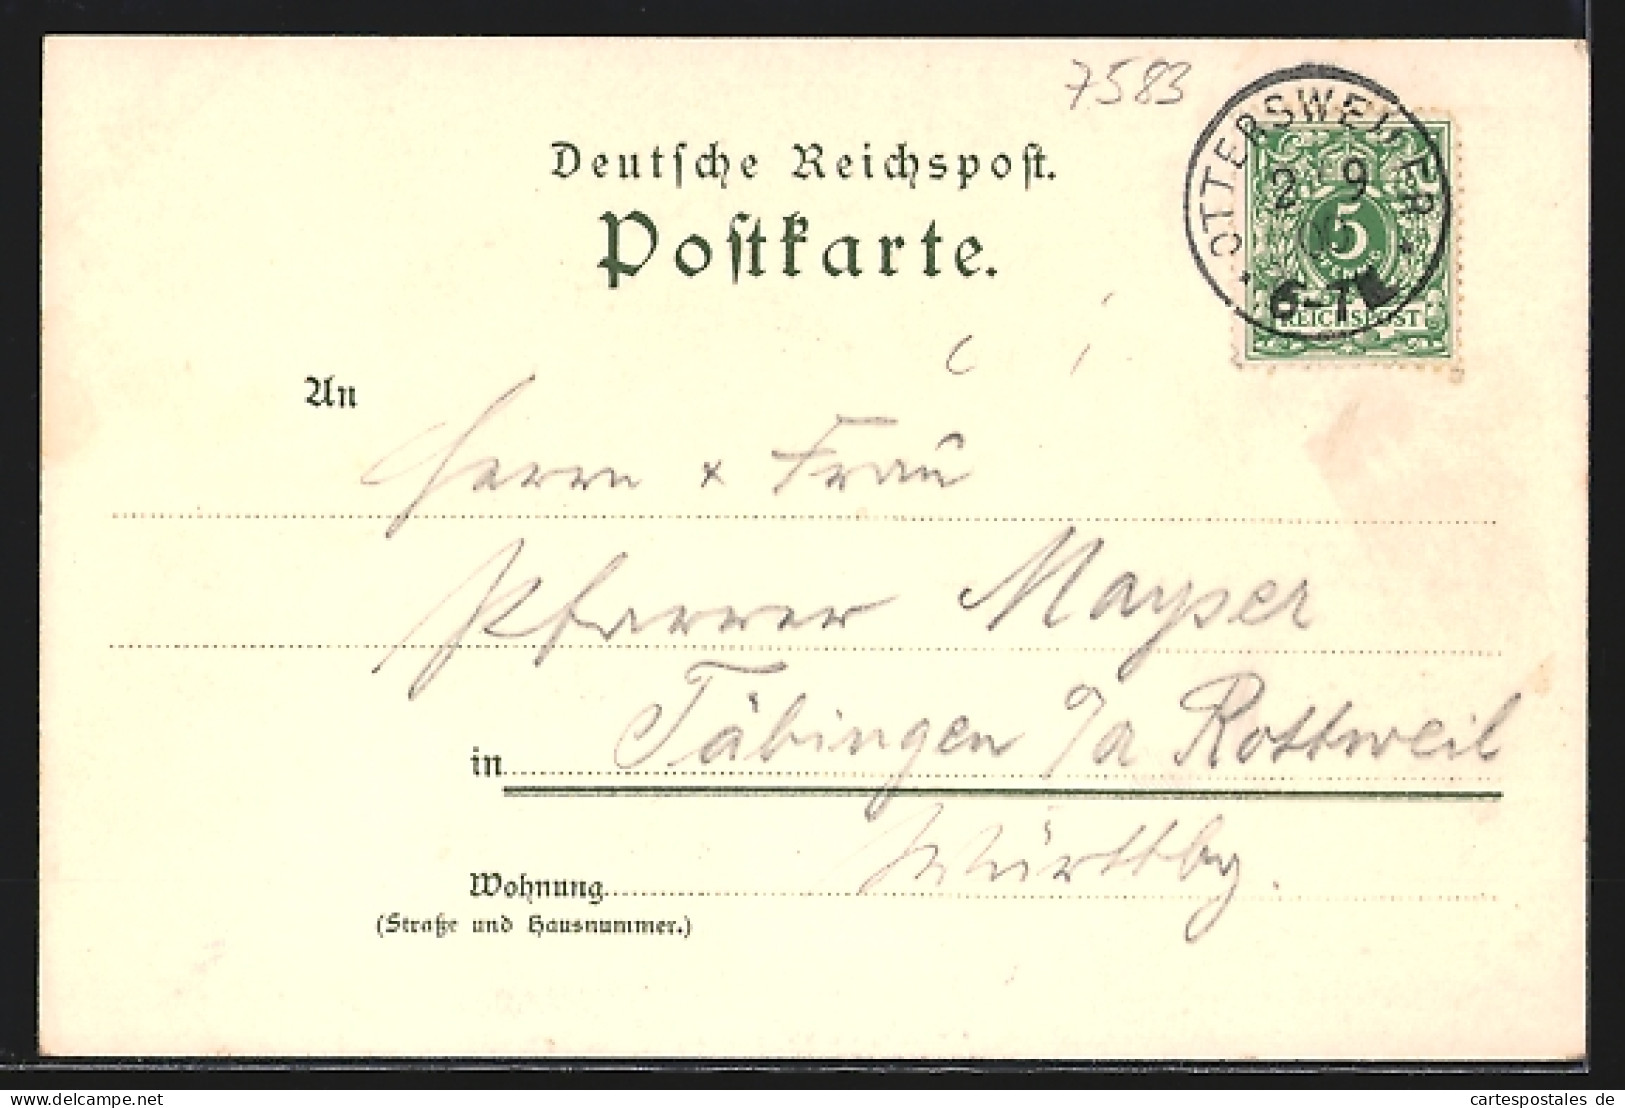 7583
Deutsche Reichspost.
Postkarte.
OTTERSWEIER
2 9
5
REICHSPOST
An
Herrn & Frau
Pfarrer Mayser
in Täbingen O/a Rottweil
Württbg.
Wohnung
(Straße und Hausnummer.)
www.delcampe.net
cartespostales de